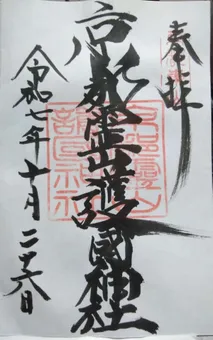 奉拝
京都霊山護國神社
令和七年十月二十六日